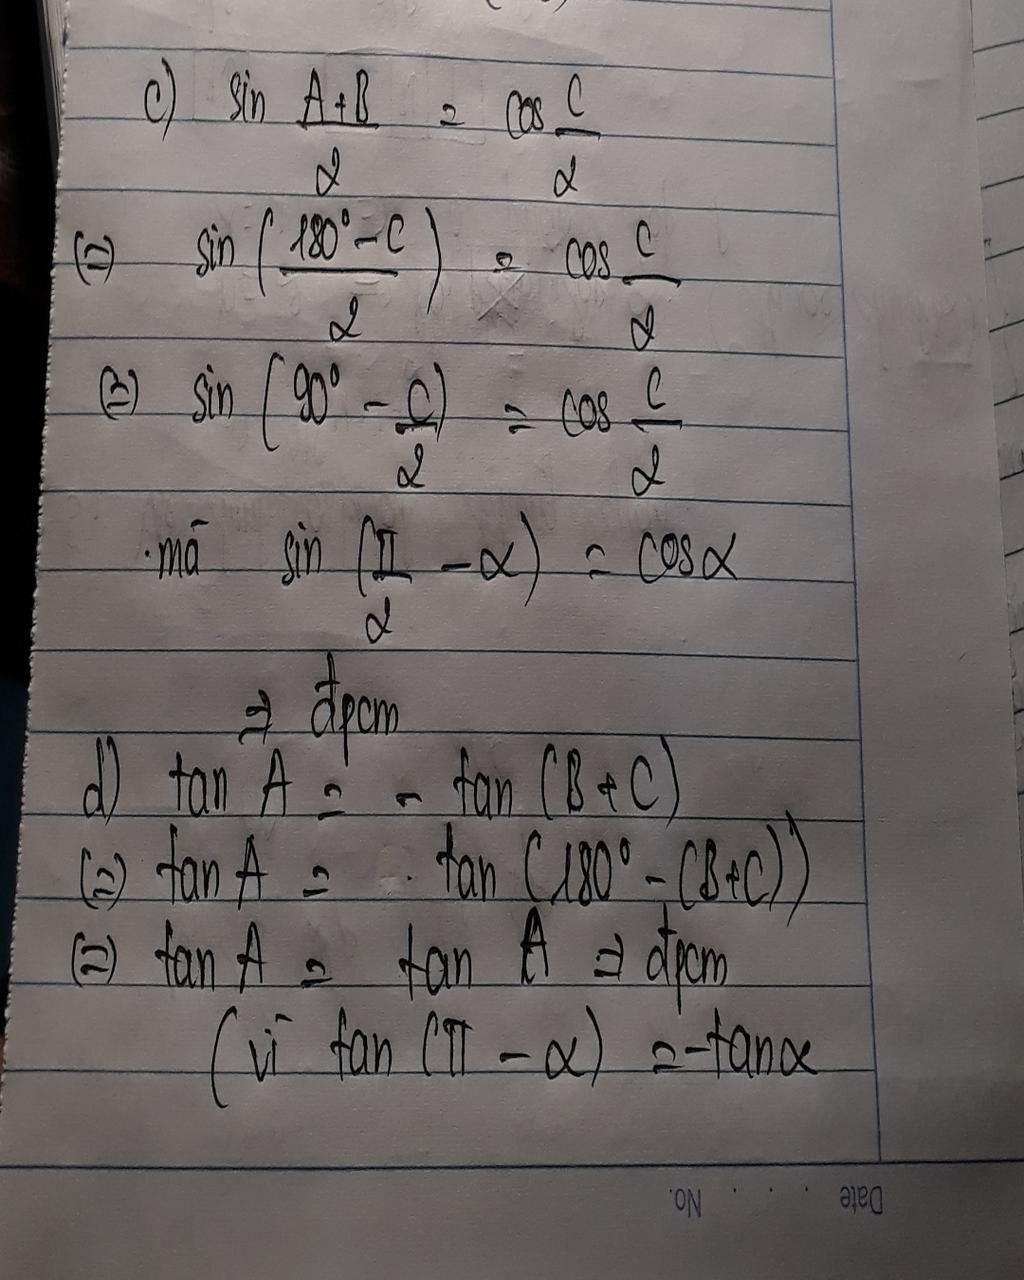 c) sin (A+B)/2 = cos C/2
(=) sin ((180° - C)/2) = cos C/2
(=) sin (90° - C/2) = cos C/2
mà sin (π/2 - α) = cos α
⇒ đpcm
d) tan A = - tan (B+C)
(=) tan A = tan (180° - (B+C))
(=) tan A = tan A ⇒ đpcm
(vì tan (π - α) = -tan α
Date No.